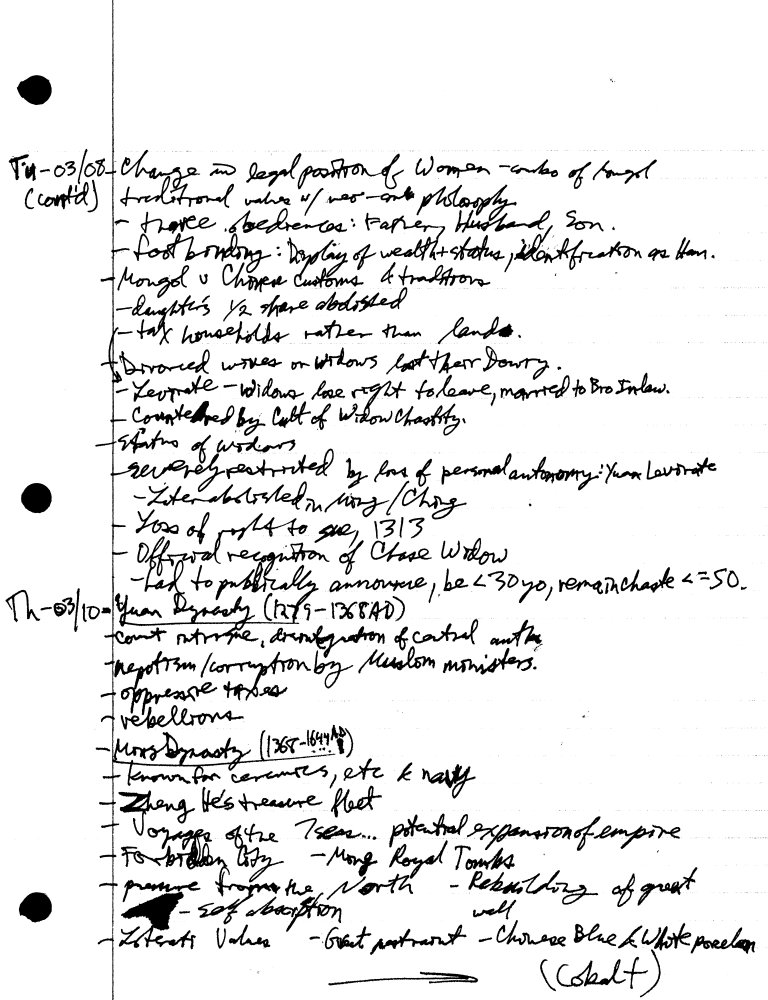 Tu-03/08 - Change in legal position of Women - combo of
(cont'd) traditional values w/ neo-conf philosophy
- three obediences: Father, Husband, Son.
- footbinding: Display of wealth + status, identification as Han.
- Mongol v Chinese Customs & traditions
- daughter's 1/2 share abolished
- tax households rather than land.
- Divorced wives or widows lost their Dowry.
- Levirate - Widows lose right to leave, married to Bro Inlaw.
- Countered by Cult of Widow Chastity.
- Status of widows
- severely restricted by loss of personal autonomy: Yuan Levirate
- Later abolished in Ming/Ching
- Loss of right to sue, 1313
- Official recognition of Chase Widow
- had to publically announce, be <30yo, remain chaste <=50.
Th-03/10 - Yuan Dynasty (1279-1368AD)
- court intrigue, disintegration of central auth
- nepotism/corruption by Muslim ministers.
- oppressive taxes
- rebellions
- Ming Dynasty (1368-1644AD)
- known for ceramics, etc & navy
- Zheng He's treasure fleet
- Voyages of the 7 seas... potential expansion of empire
- Forbidden City - Ming Royal Tombs
- pressure from the North - Rebuilding of great
wall
- self absorption
- Literati Values - Chinese Blue & White porcelain
(Cobalt)